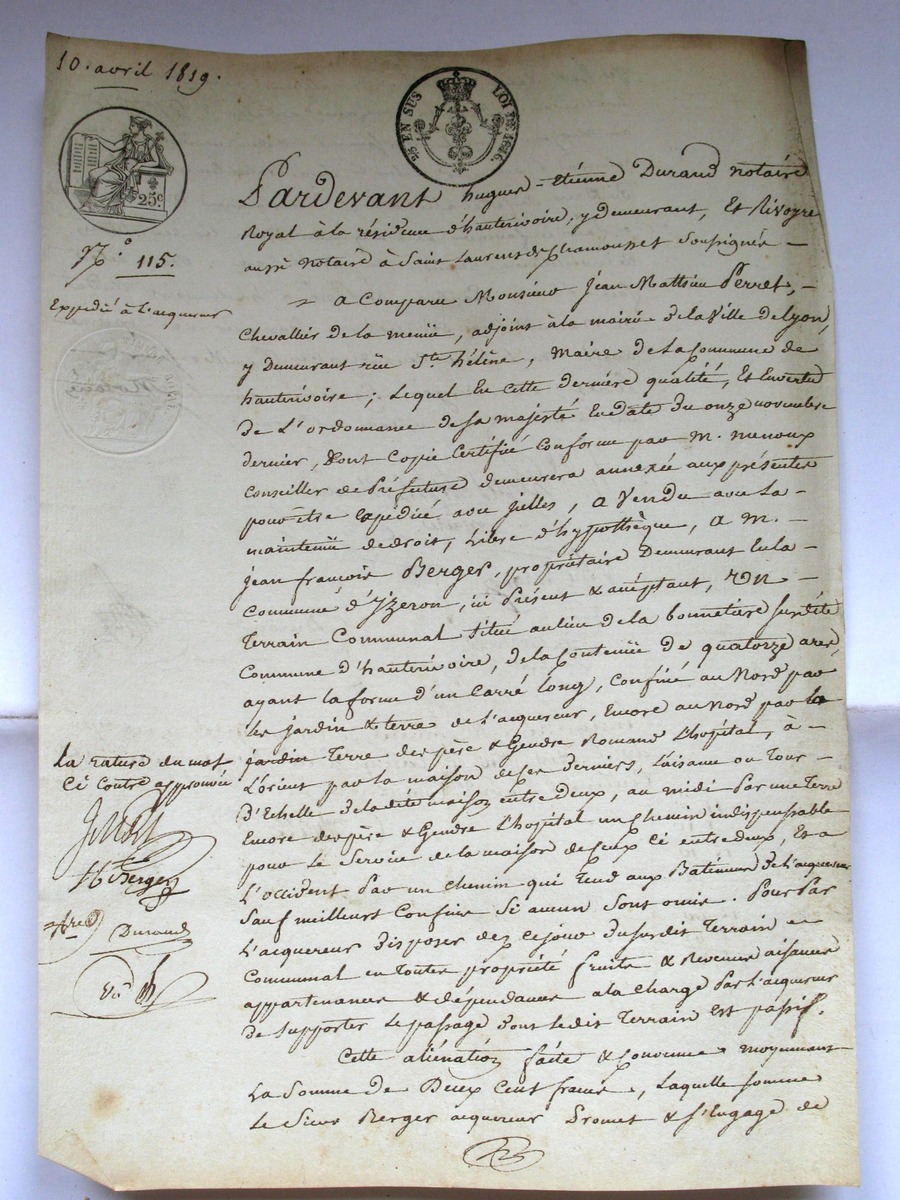 10. avril 1819.
25 EN SUS LOI DE 1816.
25c
N.° 115.
Expedié à l'acquereur
Pardevant hugues-Etienne Durand notaire
Royal à la résidence d'hauterivoire, y demeurant, Et Rivoyre
aussi notaire à Saint Laurent de Chamousset soussignés -
a Comparu Monsieur jean Mathieu Perret,
Chevallier de la , adjoint à la mairie de la Ville de Lyon,
y Demeurant rüe Ste. hélène, Maire de la Commune de
hauterivoire; Lequel En cette dernière qualité, Et En vertu
de L'ordonnance de sa majesté En date du onze novembre
dernier, Dont Copie Certifiée Conforme par M. menoux
Conseiller de Préfecture demeurera annexée aux présentes
pour être Expédiée avec jcelles, a Vendu avec La -
maintenüe de droit, Libre d'hypothèque, a M. -
jean françois Berger, propriétaire Demeurant En la -
Commune d'Yzeron, ici Présent & acceptant, un -
Terrain Communal situé au lieu de la bonnetière sur dite
Commune d'hauterivoire, de la Contenüe de quatorze ares,
ayant la forme d'un Carré long, Confiné au Nord par
les jardin & terre de L'acquereur, Encore au Nord par la
jardin Terre des père & Gendre Romand L'hôpital, à -
L'orient par la maison de ces derniers, L'aisance ou Tour -
D'Echelle de la dite maison entre deux, au midi Par une Terre
Encore des père & Gendre L'hôpital un chemin indispensable
pour Le Service de la maison de Ceux Ci entre deux, Et a
L'occident Par un Chemin qui Tend aux Batimens de L'acquereur
Sauf meilleurs Confins Si aucun Sont omis. Pour Par
L'acquereur Disposer dez ce jour du susdit Terrain -
Communal en Toutes propriété fruits & Revenus aisances
appartenances & dépendances a la charge Par L'acquereur
De supporter Le passage dont le dit Terrain Est passif.
Cette aliénation faite & Convenue moyennant
La Somme de Deux Cent francs, Laquelle somme
Le Sieur Berger acquereur Promet & s'Engage de
La rature du mot
Ci Contre approuvée
Berger
Durand